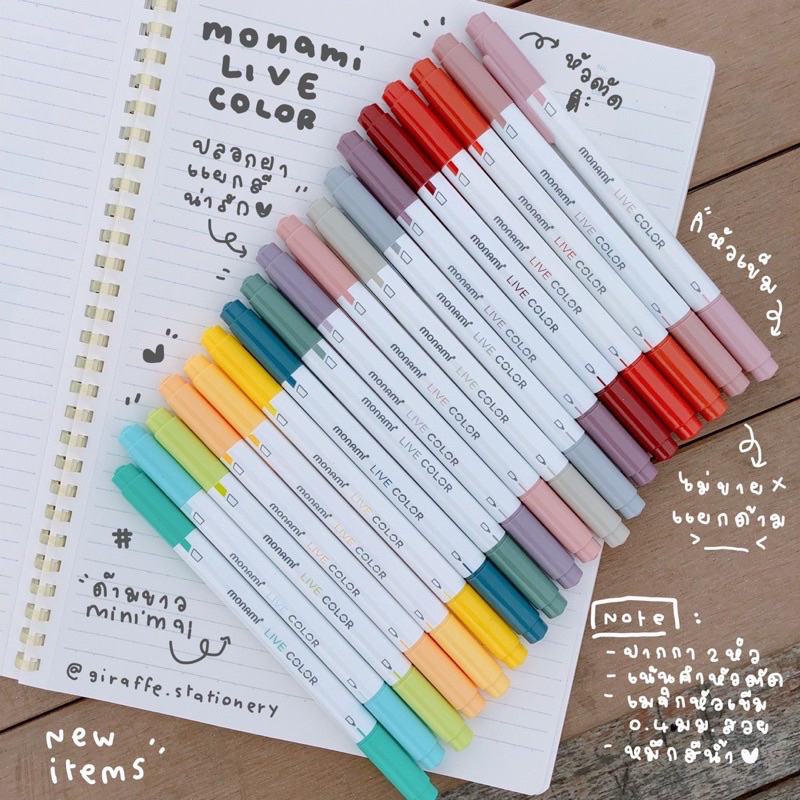 monami
LIVE
COLOR
หัวตัด
สี:
ปลอกฝา
แยกสี
น่ารัก
หัวเข็ม
ไม่ขาย
แยกด้าม
ด้ามขาว
minimal
@giraffe.stationery
New
items
Note :
- ปากกา 2 หัว
- เน้นคำหัวตัด
- เมจิกหัวเข็ม
0.4 มม. สวย
- หมึกสีน้ำ
monami LIVE COLOR
monami LIVE COLOR
monami LIVE COLOR
monami LIVE COLOR
monami LIVE COLOR
monami LIVE COLOR
monami LIVE COLOR
monami LIVE COLOR
monami LIVE COLOR
monami LIVE COLOR
monami LIVE COLOR
monami LIVE COLOR
monami LIVE COLOR
monami LIVE COLOR
monami LIVE COLOR
monami LIVE COLOR
monami LIVE COLOR